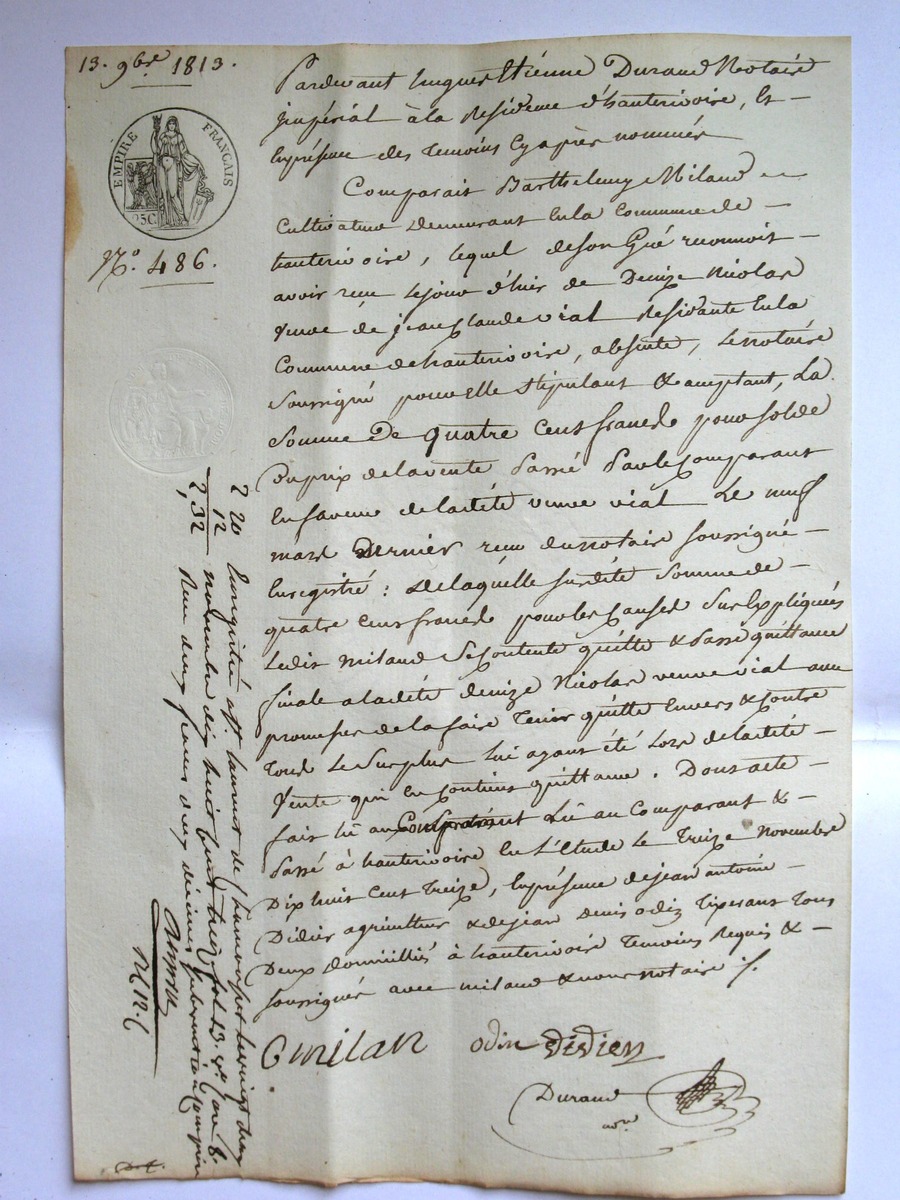 13. 9bre 1813.
EMPIRE FRANÇAIS
25C
No. 486.
Pardevant hugues Etienne Durand Notaire
impérial à la Residence d'hauterivoire, Et
En présence des Temoins Cy après nommés
Comparait Barthelemy Miland
Cultivateur Demeurant En la Commune de
hauterivoire, lequel de son Gré reconnoit
avoir reçu le jour d'hier de Denize Nicolas
Veuve de jean Claude vial Residante En la
Commune de hauterivoire, absente, le notaire
Soussigné pour elle Stipulant & acceptant, La
Somme De quatre Cent francs pour Solde
Du prix de la vente Passé Par le Comparant
En faveur de la dite veuve vial Le neuf
mars Dernier reçu du notaire Soussigné
Enregistré : De laquélle susdite Somme de
quatre Cent francs pour les Causes Sus Expliquées
Ledit miland Se Contente quitte & Passe quittance
finale a la dite denize Nicolas veuve vial avec
promesse de la faire Tenir quitte Envers & Contre
Tous Le Surplus lui ayant été Lors de la dite
Vente qui En Contient quittance. Dont acte
fait Lû au Comparant &
Passé à hauterivoire En L'Etude Le Treize Novembre
Dix huit Cent Treize, En présence de jean antoine
Didier agriculteur & de jean Denis odin Tisserant Tous
Deux Domiciliés à hauterivoire Temoins Requis &
Soussignés avec milan & nous notaire
milan odin didier
Durand
nore
2 20
12
2,32
Enregistré a St Laurent de Chamousset le vingt deux
novembre dix huit cent treize fol 13. vo Care 8.
Recu deux francs deux decimes subvention comprise